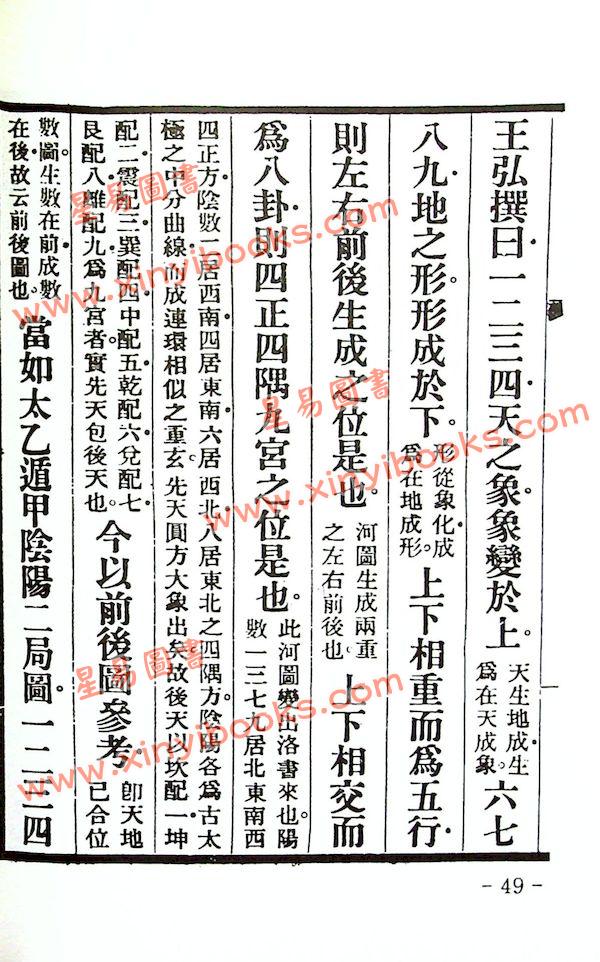 王弘撰曰一二三四天之象象變於上。天生地成生
為在天成象。六七
八九地之形形成於下。形從象化成
為在地成形。上下相重而為五行
則左右前後生成之位是也。河圖生成兩重
之左右前後也上下相交而
為八卦則四正四隅九宮之位是也。此河圖變出洛書來也陽
數一三七九居北東南西
四正方陰數二居西南四居東南六居西北八居東北之四隅方陰陽各為古太
極之中分曲線而成連環相似之重玄先天圓方大象出矣故後天以坎配一坤
配二震配三巽配四中配五乾配六兌配七
艮配八離配九為九宮者實先天包後天也。今以前後圖參考即天地
已合位
數圖生數在前成數
在後故云前後圖也。當如太乙遁甲陰陽二局圖。一二三四
- 49 -
星易圖書
www.xinyibooks.com
星易圖書
www.xinyibooks.com
星易圖書
www.xinyibooks.com
星易圖書
www.xinyibooks.com